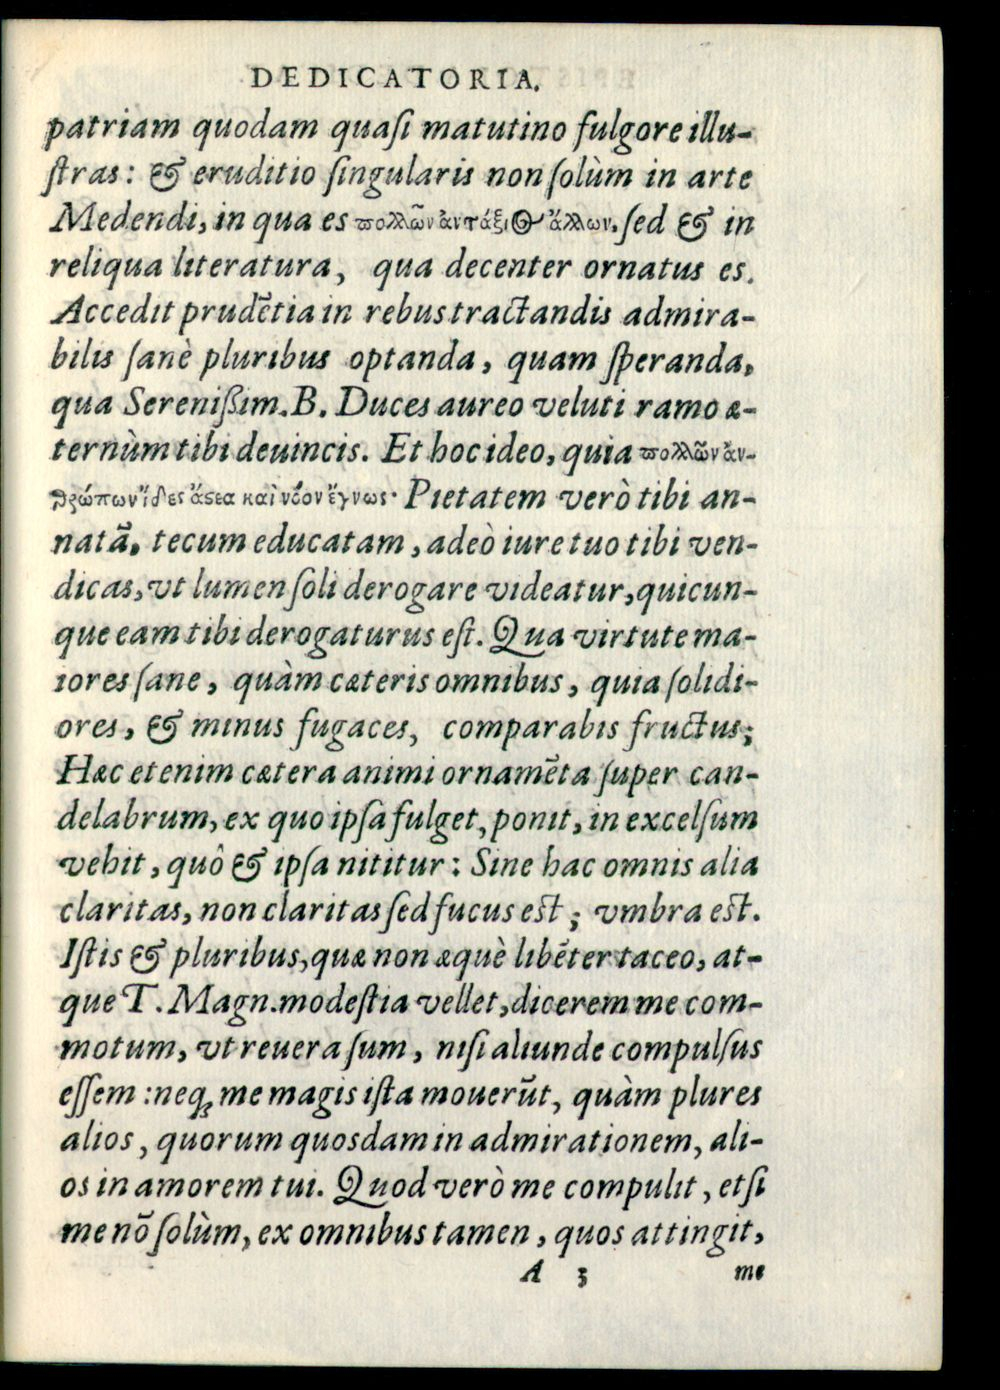 DEDICATORIA.
patriam quodam quaſi matutino fulgore illu-
ſtras: & eruditio ſingularis non ſolùm in arte
Medendi, in qua es πολλῶν ἀντάξιος ἄλλων. ſed & in
reliqua literatura, qua decenter ornatus es.
Accedit prudẽtia in rebus tractandis admira-
bilis ſanè pluribus optanda, quam ſperanda,
qua Sereniſsim. B. Duces aureo veluti ramo æ-
ternùm tibi deuincis. Et hoc ideo, quia πολλῶν ἀν-
θρώπων ἴδες ἄστεα καὶ νόον ἔγνως· Pietatem verò tibi an-
natã, tecum educatam, adeò iure tuo tibi ven-
dicas, vt lumen ſoli derogare videatur, quicun-
que eam tibi derogaturus eſt. Qua virtute ma-
iores ſane, quàm cæteris omnibus, quia ſolidi-
ores, & minus fugaces, comparabis fructus;
Hæc etenim cætera animi ornamẽta ſuper can-
delabrum, ex quo ipſa fulget, ponit, in excelſum
vehit, quô & ipſa nititur: Sine hac omnis alia
claritas, non claritas ſed fucus eſt; vmbra eſt.
Iſtis & pluribus, quæ non æquè libẽter taceo, at-
que T. Magn. modeſtia vellet, dicerem me com-
motum, vt reuera ſum, niſi aliunde compulſus
eſſem: neq; me magis iſta mouerũt, quàm plures
alios, quorum quosdam in admirationem, ali-
os in amorem tui. Quod verò me compulit, etſi
me nõ ſolùm, ex omnibus tamen, quos attingit,
A 3 me